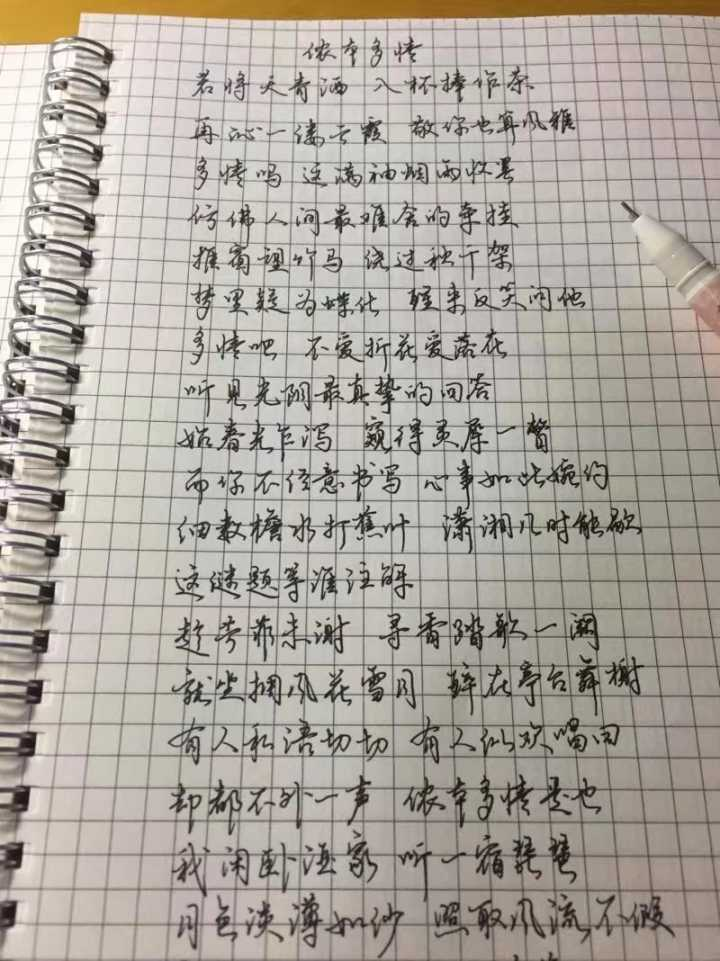 侬本多情
若将天青洒 入杯捧作茶
再沁一缕云霞 敬你也算风雅
多情吗 这满袖烟雨收罢
仿佛人间最难舍的牵挂
推窗理竹马 绕过秋千架
梦里疑为蝶化 醒来反笑问他
多情吧 不爱折花爱落花
听见光阴最真挚的回答
始春光乍泻 窥得灵犀一瞥
而你不经意书写 心事如此婉约
细数檐水打蕉叶 潇湘几时能歇
这谜题等谁注解
趁芳菲未谢 寻香踏歌一阕
就坐拥风花雪月 醉在亭台舞榭
有人私语切切 有人以欢唱回
却都不外一声 侬本多情是也
我闲卧酒家 听一宿琵琶
月色淡薄如纱 照取风流不假